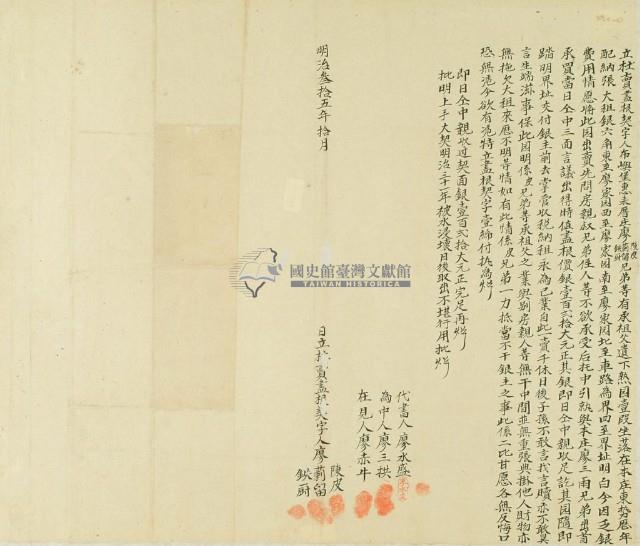 立杜賣盡根契字人布嶼堡惠來厝庄廖陳皮莿留鉄厨兄弟等有承祖父遺下熟田壹段坐落在本庄東勢歷年
配納張大租銀六角東至廖家田西至廖家田南至廖家田北至車路為界四至界址明白今因乏銀
費用情愿將此田出賣先問房親叔兄弟侄人等不欲承受后托中引就與本庄廖三雨兄弟出首
承買當日仝中三面言議出得時值盡根價銀壹百弍拾大元正其銀即日仝中親收足訖其田隨即
踏明界址交付銀主前去掌管收稅納租永為己業自此一賣千休日後子孫不敢言找言贖亦不敢異
言生端滋事保此田明係皮兄弟等承祖父之業與別房親人等無干中間並無重張典掛他人財物亦
無拖欠大租來歷不明等情如有此情係皮兄弟一力抵當不干銀主之事此係二比甘愿各無反悔口
恐無憑今欲有憑特立盡根契字壹紙付執為炤
即日仝中親收过契面銀壹百弍拾大元正完足再炤
批明上手大契明治三十一年被水浸壞日後取出不堪行用批炤
代書人廖永盛
為中人廖三拱
在見人廖赤牛
日立杜賣盡根契字人廖陳皮莿留鉄厨
明治叁拾五年拾月
國史館臺灣文獻館
TAIWAN HISTORICA